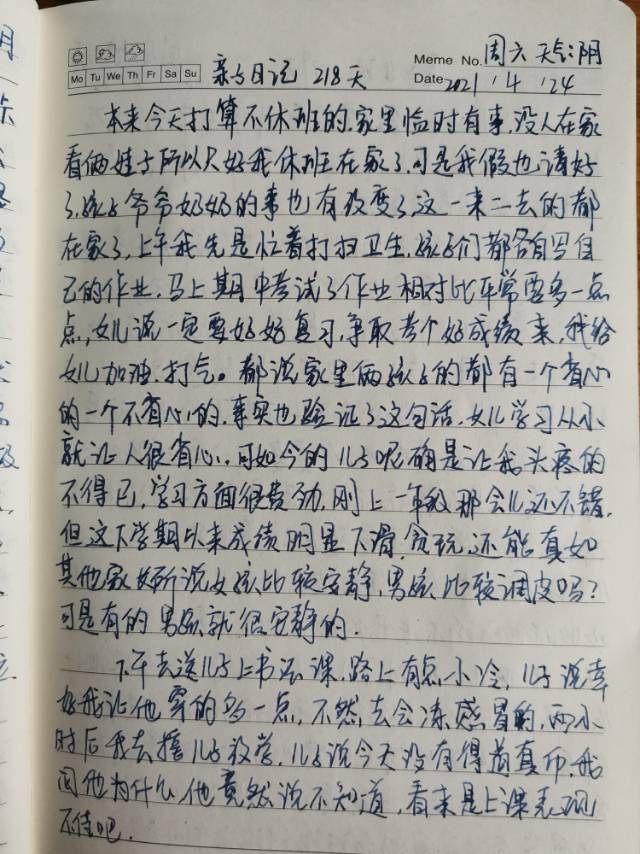 Meme No. 周六 天气:阴
Mo Tu We Th Fr Sa Su
亲子日记 218天
Date 2021/4/24
本来今天打算不休班的,家里临时有事,没人在家
看俩娃子所以只好我休班在家了,可是我假也请好
了,孩子爷爷奶奶的事也有改变了这一来二去的都
在家了,上午我先是忙着打扫卫生,孩子们都各自写自
己的作业,马上期中考试了作业相对比平常要多一点
点,女儿说一定要好好复习,争取考个好成绩来,我给
女儿加油,打气。都说家里俩孩子的都有一个省心
的一个不省心的,事实也验证了这句话,女儿学习从小
就让人很省心,可如今的儿子呢确是让我头疼的
不得已,学习方面很费劲,刚上一年级那会儿还不错,
但这下学期以来成绩明显下滑,贪玩,还能真如
其他家长所说女孩比较安静,男孩比较调皮吗?
可是有的男孩就很安静的.
下午去送儿子上书法课,路上有点小冷,儿子说幸
好我让他穿的多一点,不然去会冻感冒的,两小
时后我去接儿子放学,儿子说今天没有得着真印,我
问他为什么,他竟然说不知道,看来是上课表现
不佳吧.